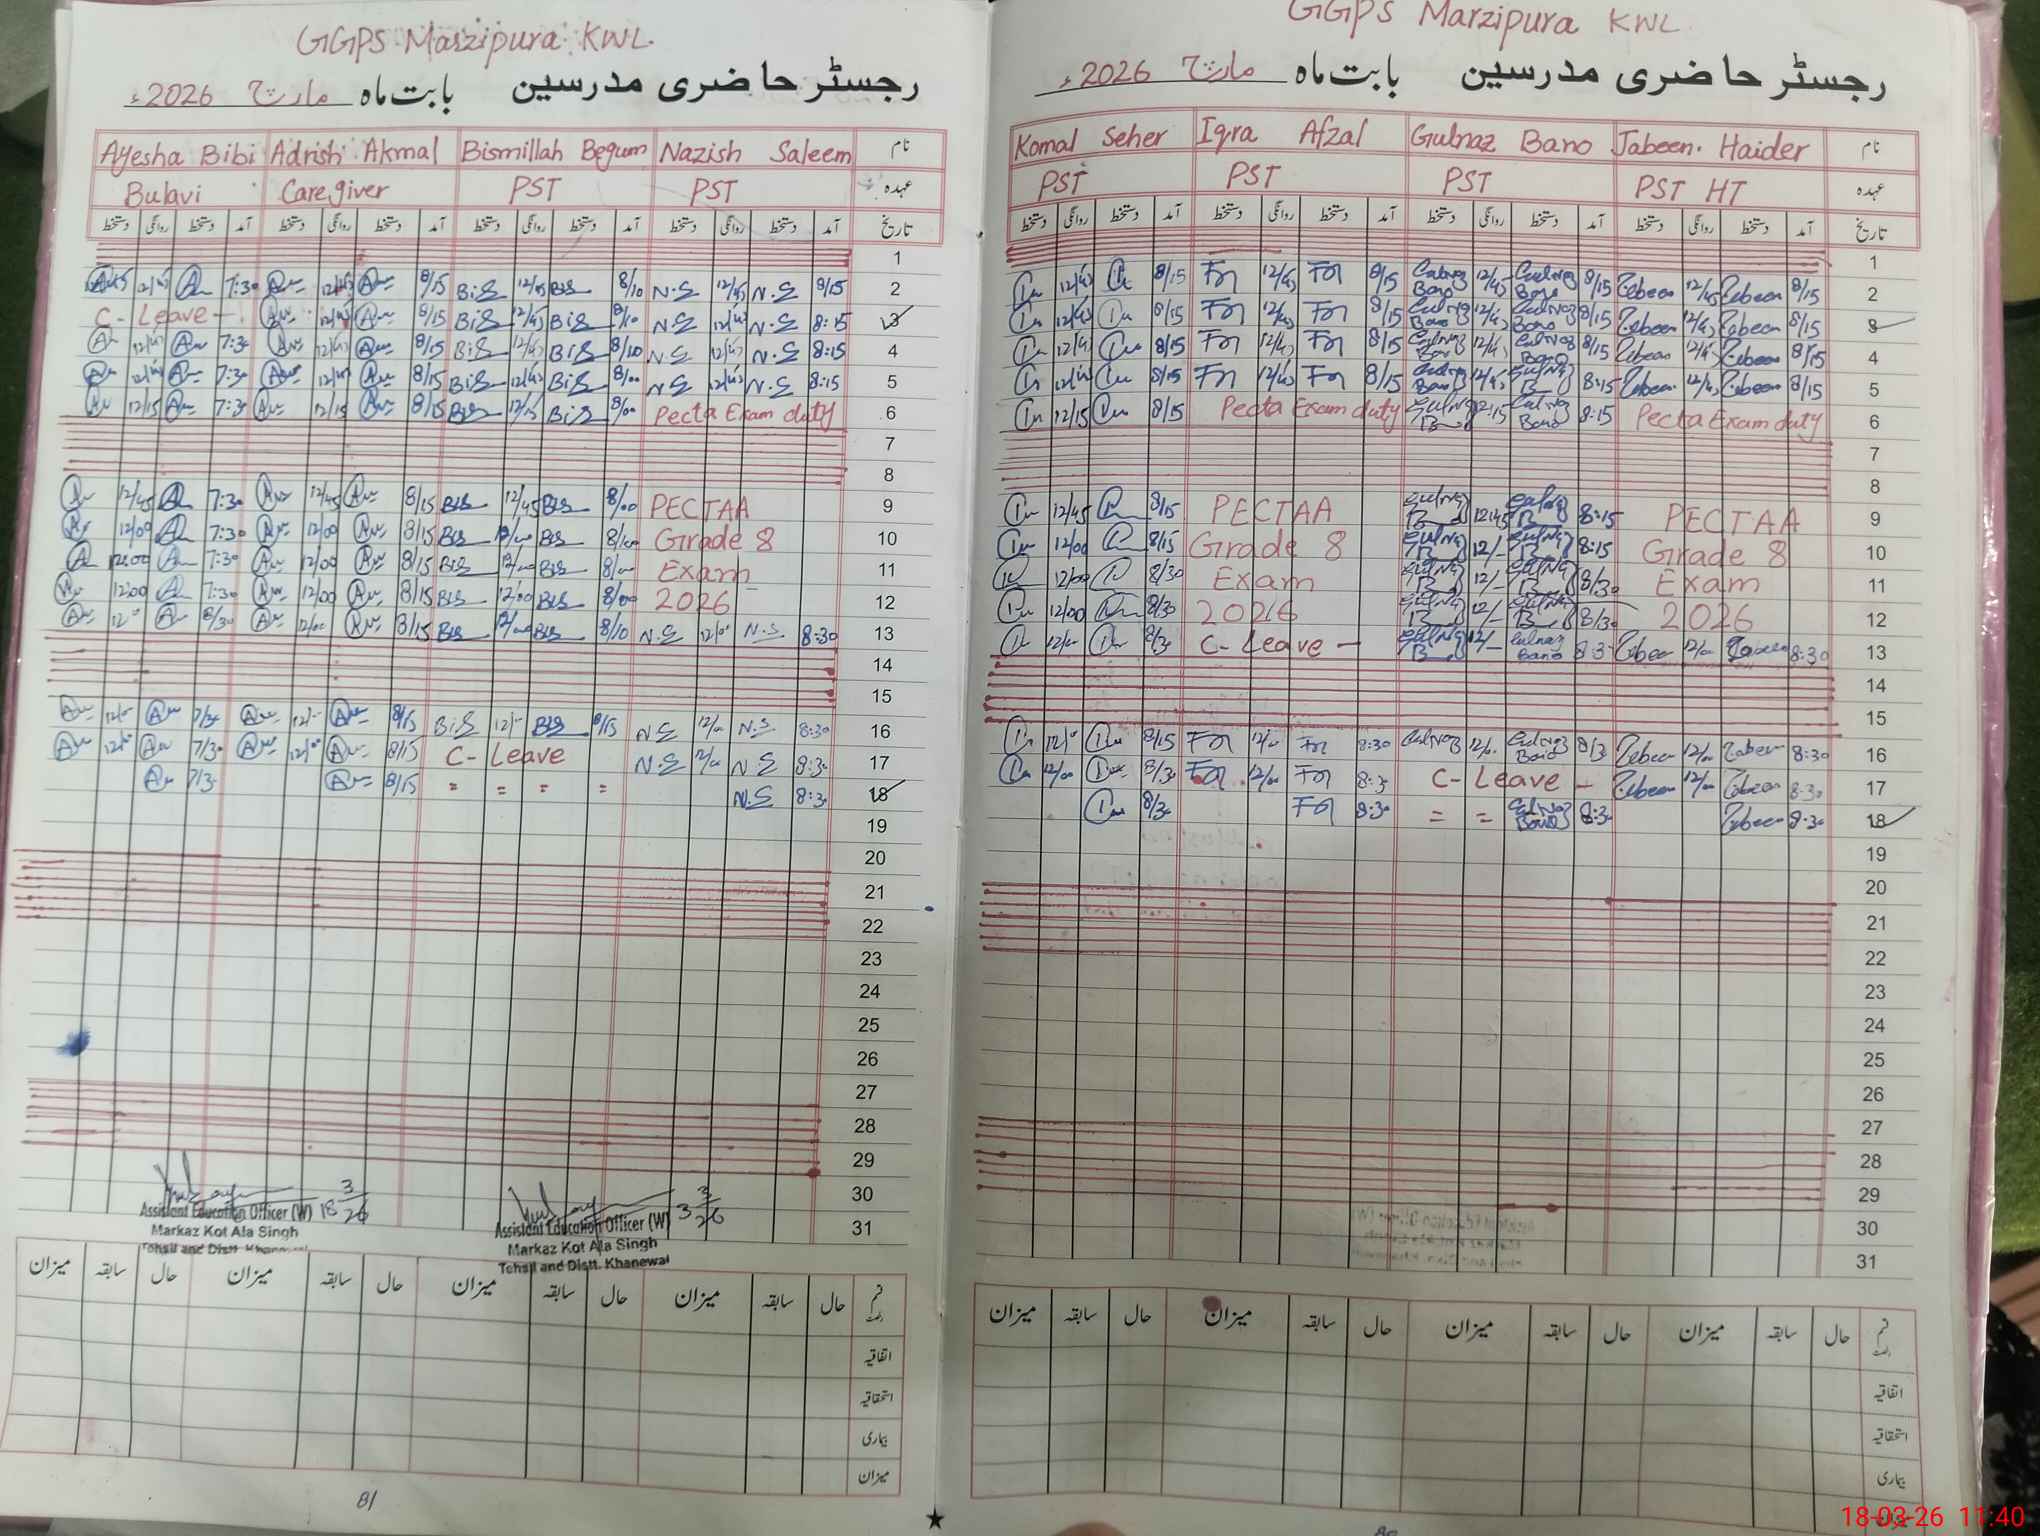 GGPS Marzipura KWL
رجسٹر حاضری مدرسین بابت ماہ مارچ 2026ء
Ayesha Bibi Adrish Akmal Bismillah Begum Nazish Saleem نام
Bulavi Caregiver PST PST عہدہ
دستخط روانگی دستخط آمد دستخط روانگی دستخط آمد دستخط روانگی دستخط آمد دستخط روانگی دستخط آمد تاریخ
1
7:30 8/15 BiS 12/45 BiS 8/10 N.S 12/45 N.S 8/15 2
C- Leave - 8/15 BiS 12/45 BiS 8/10 N.S 12/45 N.S 8:15 3
12/45 7:30 12/45 8/15 BiS 12/45 BiS 8/10 N.S 12/45 N.S 8:15 4
12/45 7:30 12/45 8/15 BiS 12/45 BiS 8/00 N.S 12/45 N.S 8:15 5
12/15 7:30 12/15 8/15 BiS 12/15 BiS 8/00 Pecta Exam duty 6
7
8
12/45 7:30 12/45 8/15 BiS 12/45 BiS 8/00 PECTAA 9
12/00 7:30 12/00 8/15 BiS BiS 8/00 Grade 8 10
12:00 7:30 12/00 8/15 BiS BiS 8/00 Exam 11
12:00 7:30 12/00 8/15 BiS 12:00 BiS 8/00 2026 12
8/30 12/00 8/15 BiS 12/00 BiS 8/10 N.S 12/00 N.S 8:30 13
14
15
7/30 8/15 BiS 12/- BiS 8/15 N.S 12/00 N.S 8:30 16
7/30 12/00 8/15 C- Leave N.S 12/00 N.S 8:30 17
7/30 8/15 = = = = N.S 8:30 18
19
20
21
22
23
24
25
26
27
28
29
30
31
18 3/26
Assistant Education Officer (W)
Markaz Kot Ala Singh
Tehsil and Distt. Khanewal
3 3/26
Assistant Education Officer (W)
Markaz Kot Ala Singh
Tehsil and Distt. Khanewal
میزان سابقہ حال میزان سابقہ حال میزان سابقہ حال میزان سابقہ حال
اتفاقیہ
استحقاقیہ
بیماری
میزان
81
GGPS Marzipura KWL
رجسٹر حاضری مدرسین بابت ماہ مارچ 2026ء
Komal Seher Iqra Afzal Gulnaz Bano Jabeen Haider نام
PST PST PST PST HT عہدہ
دستخط روانگی دستخط آمد دستخط روانگی دستخط آمد دستخط روانگی دستخط آمد دستخط روانگی دستخط آمد تاریخ
1
12/45 8/15 12/45 8/15 Gulnaz Bano 12/45 Gulnaz Bano 8/15 Jabeen 12/45 Jabeen 8/15 2
12/45 8/15 12/45 8/15 Gulnaz Bano 12/45 Gulnaz Bano 8/15 Jabeen 12/45 Jabeen 8/15 3
12/45 8/15 12/45 8/15 Gulnaz Bano 12/45 Gulnaz Bano 8/15 Jabeen 12/45 Jabeen 8/15 4
12/45 8/15 12/45 8/15 Gulnaz Bano 12/45 Gulnaz 8:15 Jabeen 12/45 Jabeen 8/15 5
12/15 8/15 Pecta Exam duty Gulnaz 12:15 Gulnaz Bano 8:15 Pecta Exam duty 6
7
8
12/45 8/15 PECTAA Gulnaz 12:45 Gulnaz 8:15 PECTAA 9
12/00 8/15 Grade 8 Gulnaz 12/- Gulnaz 8:15 Grade 8 10
12/00 8/30 Exam Gulnaz 12/- Gulnaz 8/30 Exam 11
12/00 8/30 2026 Gulnaz 12/- Gulnaz 8/30 2026 12
12/00 8/30 C- Leave - Gulnaz 12/- Gulnaz Bano 8:30 Jabeen 12/00 Jabeen 8:30 13
14
15
8/15 12/00 8:30 Gulnaz Gulnaz Bano 8/30 Jabeen 12/00 Jabeen 8:30 16
12/00 8/30 12/00 8:30 C- Leave - Jabeen 12/00 Jabeen 8:30 17
8/30 8:30 = = Gulnaz Bano 8:30 Jabeen 8:30 18
19
20
21
22
23
24
25
26
27
28
29
30
31
میزان سابقہ حال میزان سابقہ حال میزان سابقہ حال میزان سابقہ حال
اتفاقیہ
استحقاقیہ
بیماری
18-03-26 11:40